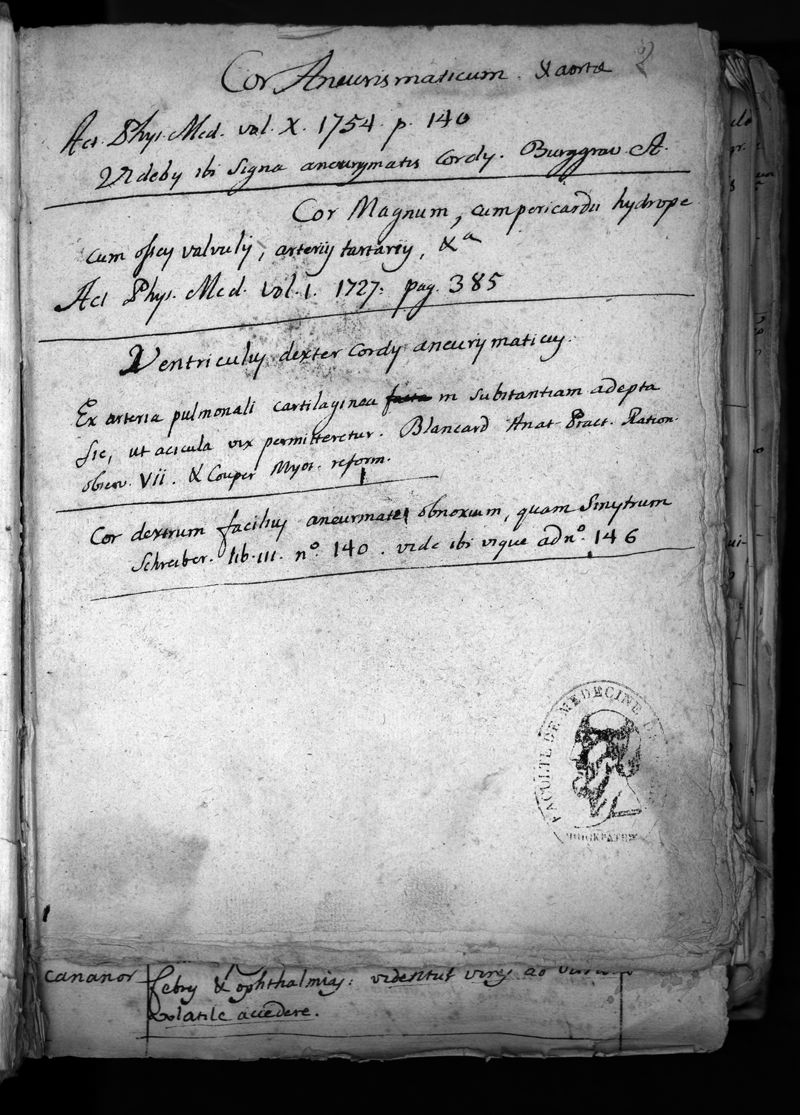 2
Cor Aneurismaticum. & aortæ
Act. Phys. Med. vol. X. 1754. p. 140
Videby ibi Signa aneurymatis Cordy. Burggrav. A.
Cor Magnum, cum pericardii hydrope
cum ossey valvuly, arteriy tartarey, &a
Act Phys. Med. Vol. 1. 1727. pag. 385
Ventriculuy dexter Cordy aneurymaticuy.
Ex arteria pulmonali cartilaginea facta in Substantiam adepta
sic, ut acicula vix permitteretur. Blancard Anat. Pract. Ration.
observ. VII. & Couper Myot. reform.
Cor dextrum faciliuy aneurmati obnoxium, quam Sinytrum
Schreiber. lib. III. nº. 140. vide ibi uyque ad nº. 146
FACULTE DE MEDECINE DE
cananor
febry & ophthalmiay: videntut virey ao
volatile accedere.